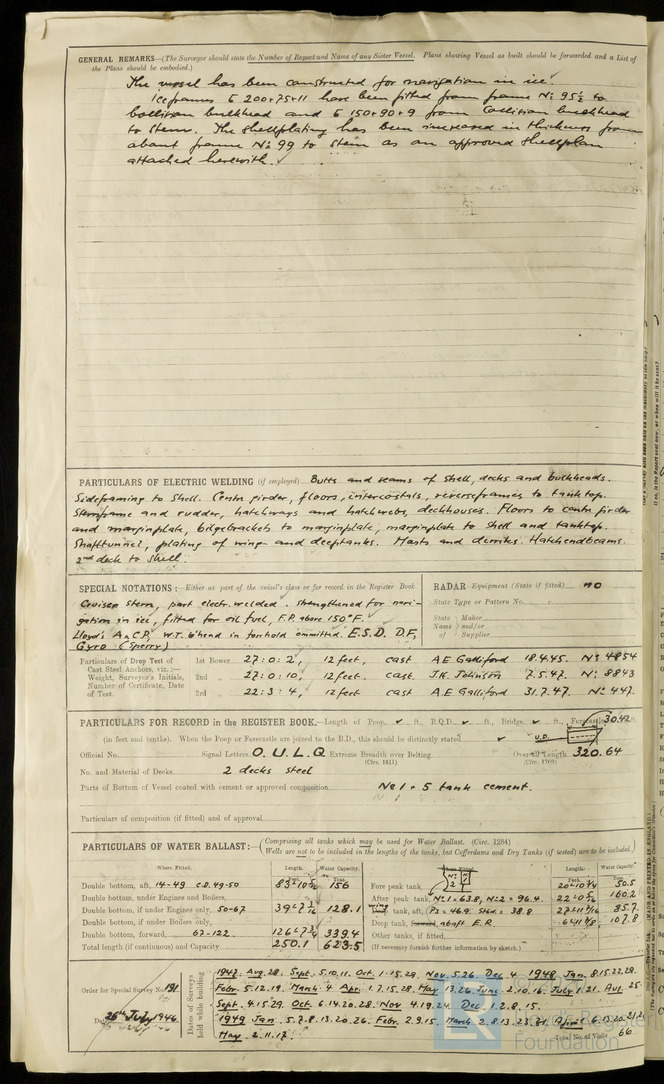 GENERAL REMARKS—(The Surveyor should state the Number of Report and Name of any Sister Vessel. Plans showing Vessel as built should be forwarded and a List of
the Plans should be embodied.)
The vessel has been constructed for navigation in ice.
Iceframes 6 200+75+11 have been fitted from frame No: 95½ to
collision bulkhead and 6 150+90+9 from Collision bulkhead
to stem. The shellplating has been increased in thickness from
about frame No: 99 to stem as on approved shellplan
attached herewith.
PARTICULARS OF ELECTRIC WELDING (if employed) Butts and seams of shell, decks and bulkheads.
Sideframing to shell. Centr girder, floors, intercostals, reverseframes to tanktop.
Sternframe and rudder, hatchways and hatchwebs, deckhouses. Floors to centr girder
and marginplate, bilgebrackets to marginplate, marginplate to shell and tanktop.
Shafttunnel, plating of wing- and deeptanks. Masts and derriks. Hatchendbeams.
2nd deck to shell.
SPECIAL NOTATIONS:—Either as part of the vessel's class or for record in the Register Book
Cruiser stern, part electr. welded. strengthened for navi-
gation in ice, fitted for oil fuel, F.P. above 150°F.
Lloyd's A & C.P. W.T. b'head in forehold ommitted. E.S.D. D.F.
Gyro (Sperry)
RADAR Equipment (State if fitted) no
State Type or Pattern No.
State Name and/or of Maker Supplier
Particulars of Drop Test of
Cast Steel Anchors, viz.:—
Weight, Surveyor's Initials,
Number of Certificate, Date
of Test.
1st Bower 27:0:2, 12 feet, cast A.E Galliford 18.4.45. No: 4854
2nd „ 27:0:10, 12 feet. cast J.K. Johnson 7.5.47. No: 8843
3rd „ 22:3:4, 12 feet cast A.E Galliford 31.7.47. No: 447.
PARTICULARS FOR RECORD in the REGISTER BOOK,—Length of Poop, ft., R.Q.D. ft., Bridge ft., Forecastle 30.42 ft.
(in feet and tenths). When the Poop or Forecastle are joined to the B.D., this should be distinctly stated U.D.
Official No. Signal Letters O.U.L.Q Extreme Breadth over Belting (Circ. 1611) Overall Length (Circ. 1703) 320.64
No. and Material of Decks 2 decks steel
Parts of Bottom of Vessel coated with cement or approved composition No 1 + 5 tank cement.
Particulars of composition (if fitted) and of approval
PARTICULARS OF WATER BALLAST:—(Comprising all tanks which may be used for Water Ballast. (Circ. 1284)
Wells are not to be included in the lengths of the tanks, but Cofferdams and Dry Tanks (if tested) are to be included.)
Where Fitted. Length. Water Capacity.
Feet. Tons.
Double bottom, aft, 14-49 C.D. 49-50 83'-10 5/8 156
Double bottom, under Engines and Boilers,
Double bottom, if under Engines only, 50-67 39'-7 3/16 128.1
Double bottom, if under Boilers only,
Double bottom, forward, 67-122 126'-7 3/4 339.4
Total length (if continuous) and Capacity 250.1 623.5
Where Fitted. Length. Water Capacity.
Feet. Tons.
Fore peak tank, 20'-10 1/4 50.5
After peak tank, No: 1 = 63.8, No: 2 = 96.4. 160.2
wing tank, aft, (Ps = 46.9. Stbd. = 38.8 85.7.
Deep tank, forward abaft E.R. 107.8
Other tanks, if fitted
(If necessary furnish further information by sketch.)
Order for Special Survey No. 191.
Date 26th July 1946
Dates of Surveys held while building
1947: Aug. 28. Sept. 5.10.11. Oct. 1.15.29. Nov. 5.26. Dec. 4. 1948 Jan. 8.15.22.28.
Febr. 5.12.19. March 4 Apr. 1.7.15.28. May 13.26. June 2.10.16. July 1.21. Aug. 25.
Sept. 4.15.29. Oct. 6.14.20.28. Nov. 4.19.24. Dec. 1.2.8.15.
1949 Jan. 5.7.8.13.20.26. Febr. 2.9.15. March 2.8.13.23.31. April 6.13.20.21.
May. 2.11.17.
Total No. of Visits 66
Lloyd's Register
Foundation